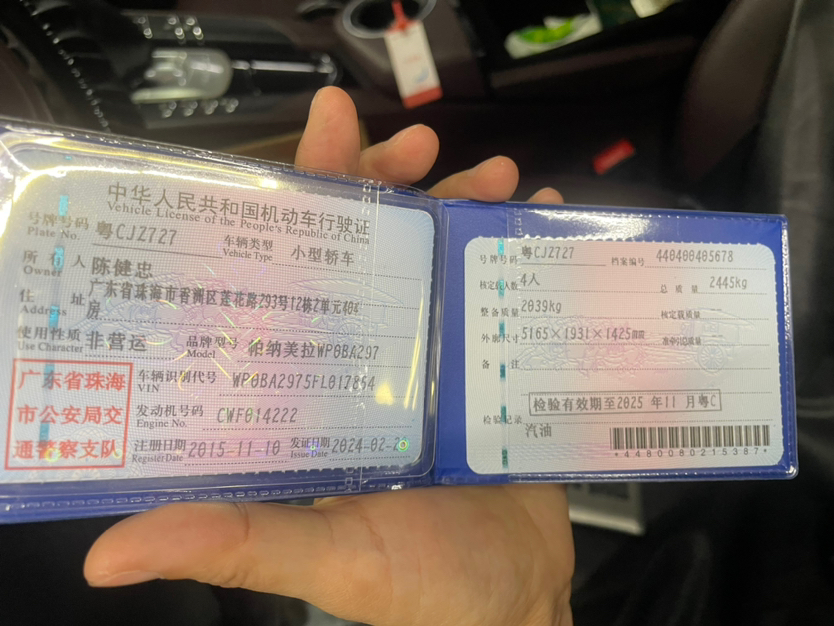 中华人民共和国机动车行驶证
Vehicle License of the People's Republic of China
号牌号码 粤CJZ727 车辆类型 小型轿车
Plate No. Vehicle Type
所有人 陈健忠
Owner
住址 广东省珠海市香洲区莲花路293号12栋2单元404
Address 房
使用性质 非营运 品牌型号 帕纳美拉WP0BA297
Use Character Model
广东省珠海
市公安局交
通警察支队
车辆识别代号 WP0BA2975FL017854
VIN
发动机号码 CWF014222
Engine No.
注册日期 2015-11-10 发证日期 2024-02-
Register Date Issue Date
号牌号码 粤CJZ727 档案编号 440400405678
核定载人数 4人 总质量 2445kg
整备质量 2039kg 核定载质量
外廓尺寸 5165×1931×1425mm 准牵引总质量
备注
检验有效期至2025年11月粤C
检验记录
汽油
*4480080215387*